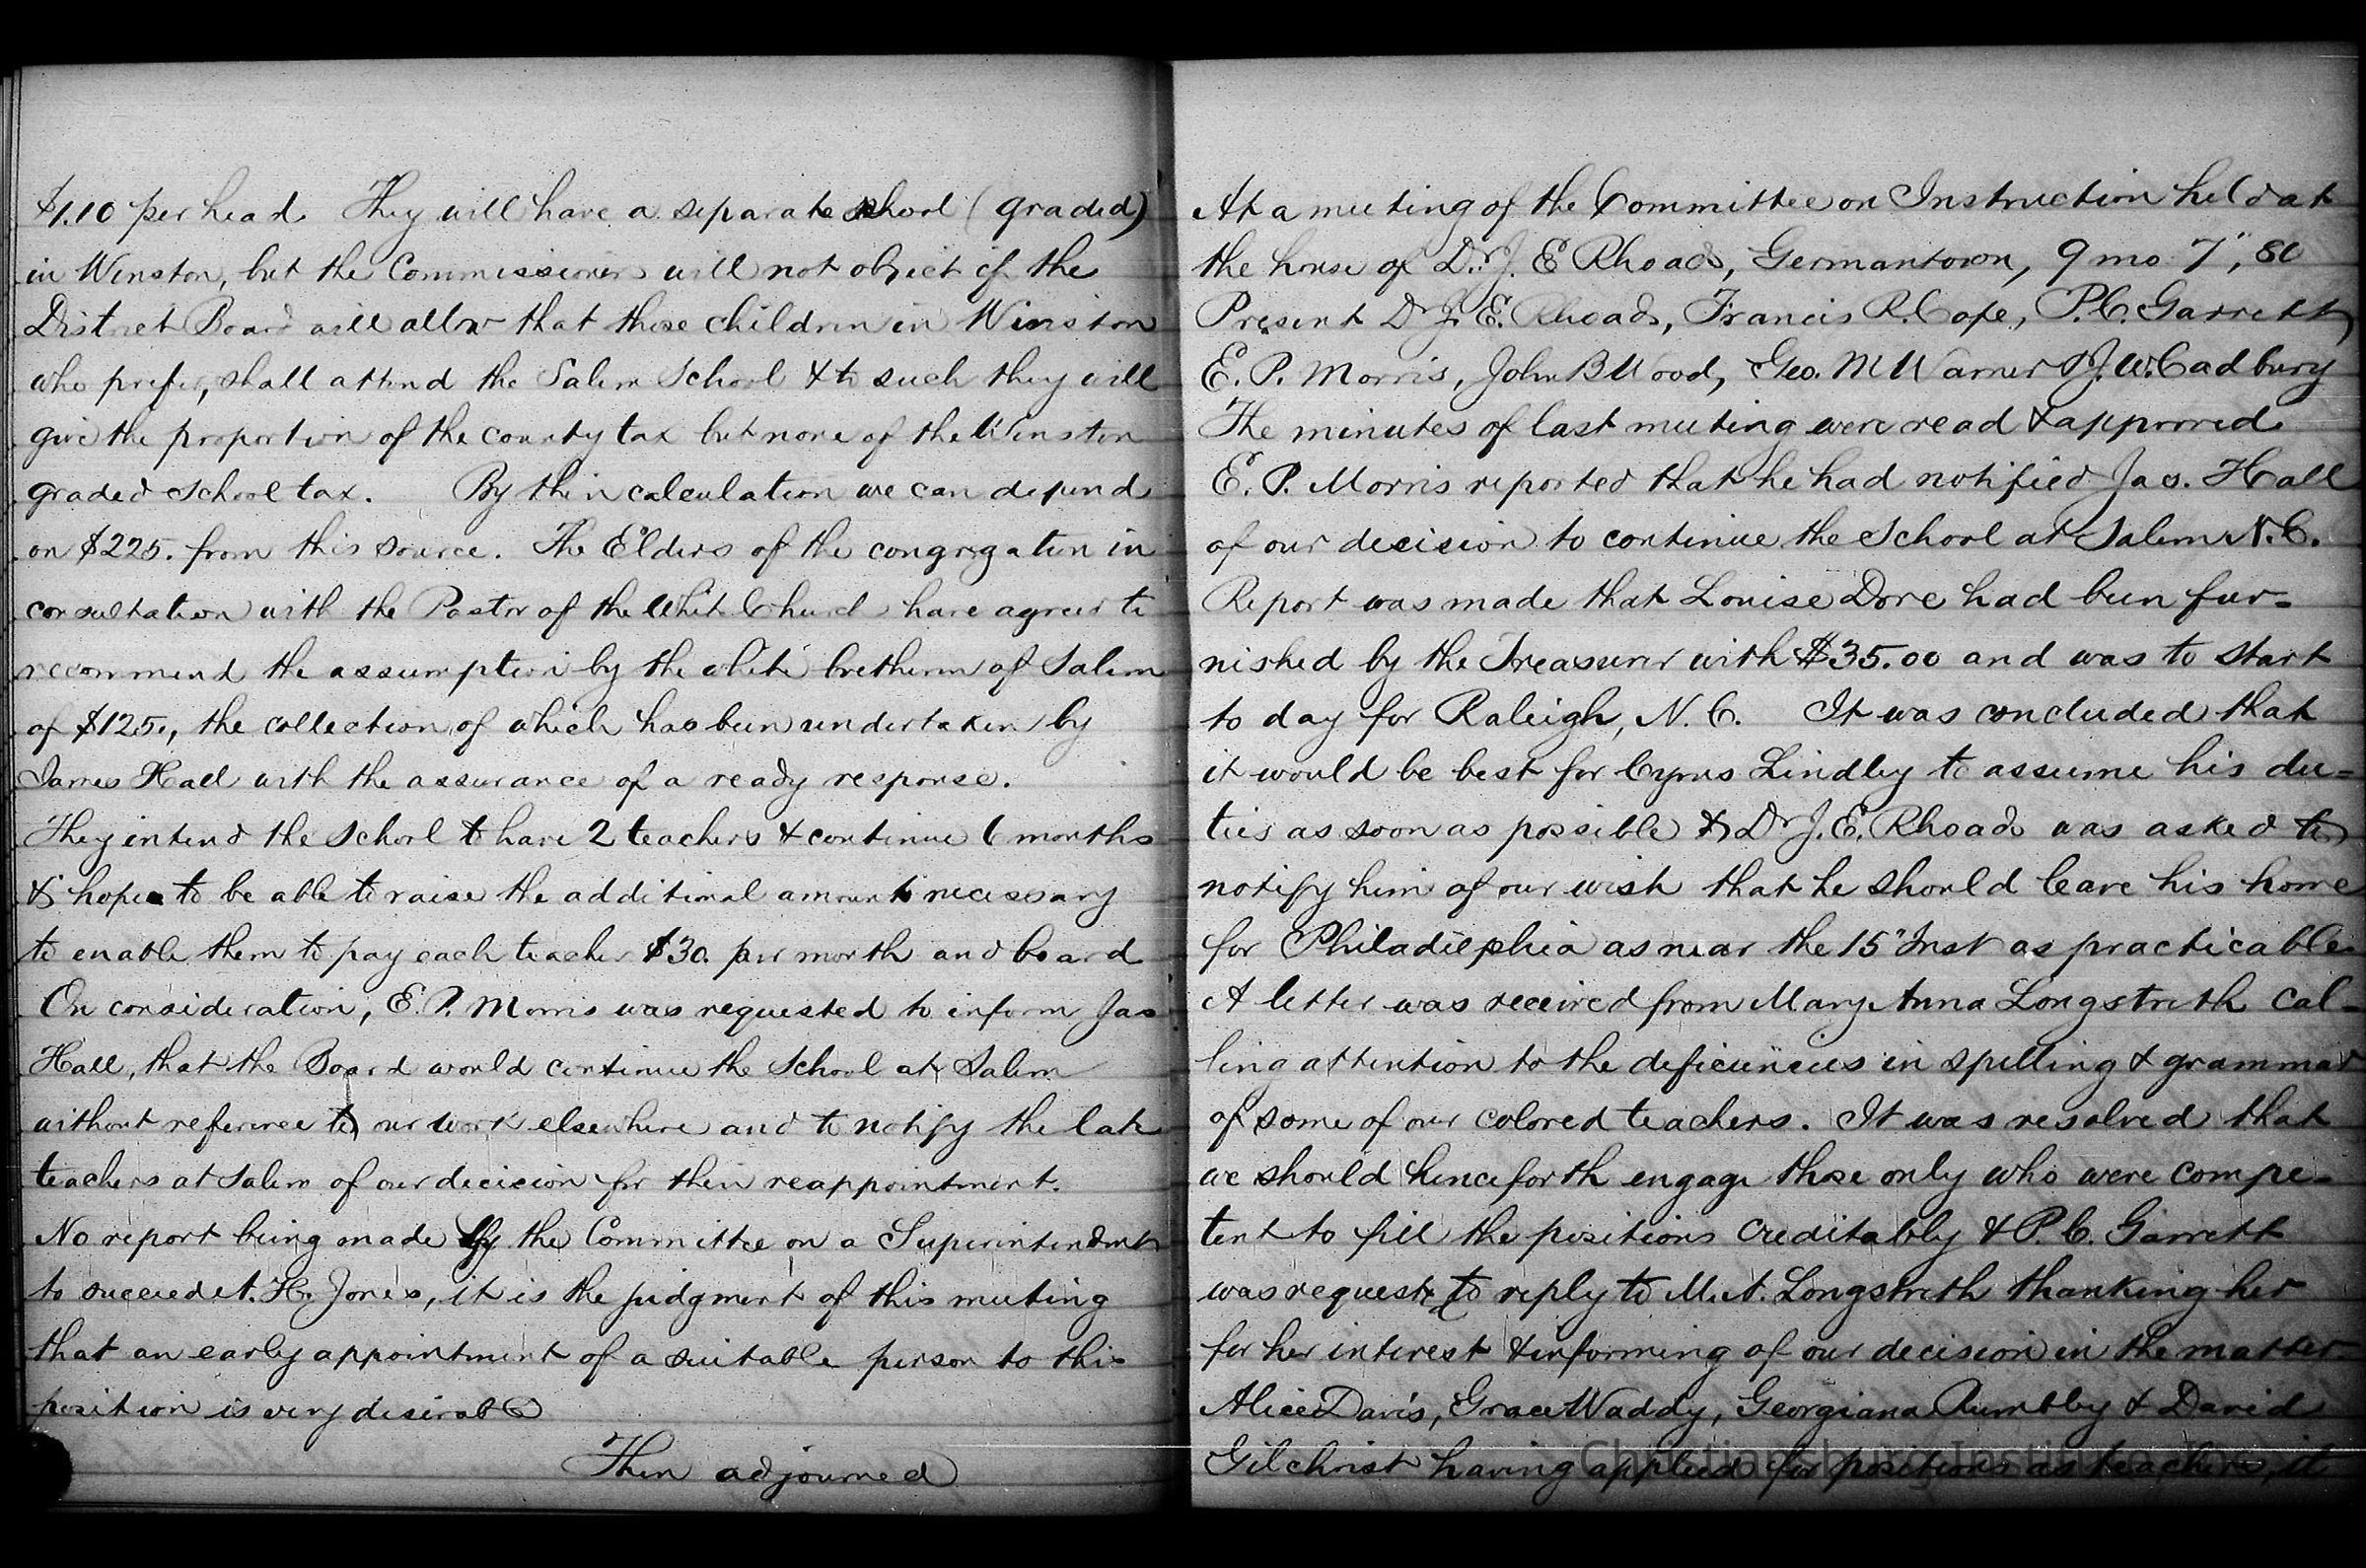 $1.10 per head. They will have a separate school (graded)
in Winston, but the Commissioners will not object if the
District Board will allow that those children in Winston
who prefer, shall attend the Salem School & to such they will
give the proportion of the county tax but none of the Winston
graded School tax. By their calculation we can depend
on $225. from this source. The Elders of the congregation in
consultation with the Pastor of the White Church have agreed to
recommend the assumption by the white bretheren of Salem
of $125., the collection of which has been undertaken by
James Hall with the assurance of a ready response.
They intend the School to have 2 teachers & continue 6 months
& hope to be able to raise the additional amount necessary
to enable them to pay each teacher $30. per month and board
On consideration, E. P. Morris was requested to inform Jas
Hall, that the Board would continue the School at Salem
without reference to our work elsewhere and to notify the late
teachers at Salem of our decision for their reappointment.
No report being made by the Committee on a Superintendent
to succeed A. H. Jones, it is the judgment of this meeting
that an early appointment of a suitable person to this
position is very desirable
Then adjourned
At a meeting of the Committee on Instruction held at
the house of Dr. J. E Rhoads, Germantown, 9 mo 7", 80
Present Dr J. E. Rhoads, Francis R. Cope, P. C. Garrett
E. P. Morris, John B Wood, Geo. M Warner & J. W. Cadbury
The minutes of last meeting were read & approved
E. P. Morris reported that he had notified Jas. Hall
of our decision to continue the School at Salem N. C.
Report was made that Louise Dore had been fur-
nished by the Treasurer with $35.00 and was to start
to day for Raleigh, N. C. It was concluded that
it would be best for Cyrus Lindley to assume his du-
ties as soon as possible & Dr J. E. Rhoads was asked to
notify him of our wish that he should leave his home
for Philadelphia as near the 15" Inst as practicable
A letter was received from Mary Anna Longstreth cal-
ling attention to the deficiencies in spelling & grammar
of some of our colored teachers. It was resolved that
we should henceforth engage those only who were compe-
tent to fill the positions creditably & P. C. Garrett
was request to reply to M. A. Longstreth thanking her
for her interest & informing of our decision in the matter
Alice Davis, Grace Waddy, Georgiana Rumbley & David
Gilchrist having applied for positions as teachers, it
Christiansburg Institute